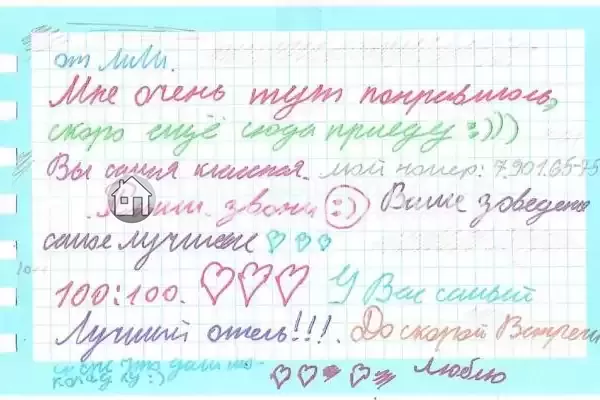 от МиМи.
Мне очень тут понравилось,
скоро ещё сюда приеду :)))
Вы самая классная. мой номер: 7.901.65-75
звони :) Ваше заведение
самое лучшее
100:100. У Вас самый
Лучший отель!!! До скорой Встречи
Люблю